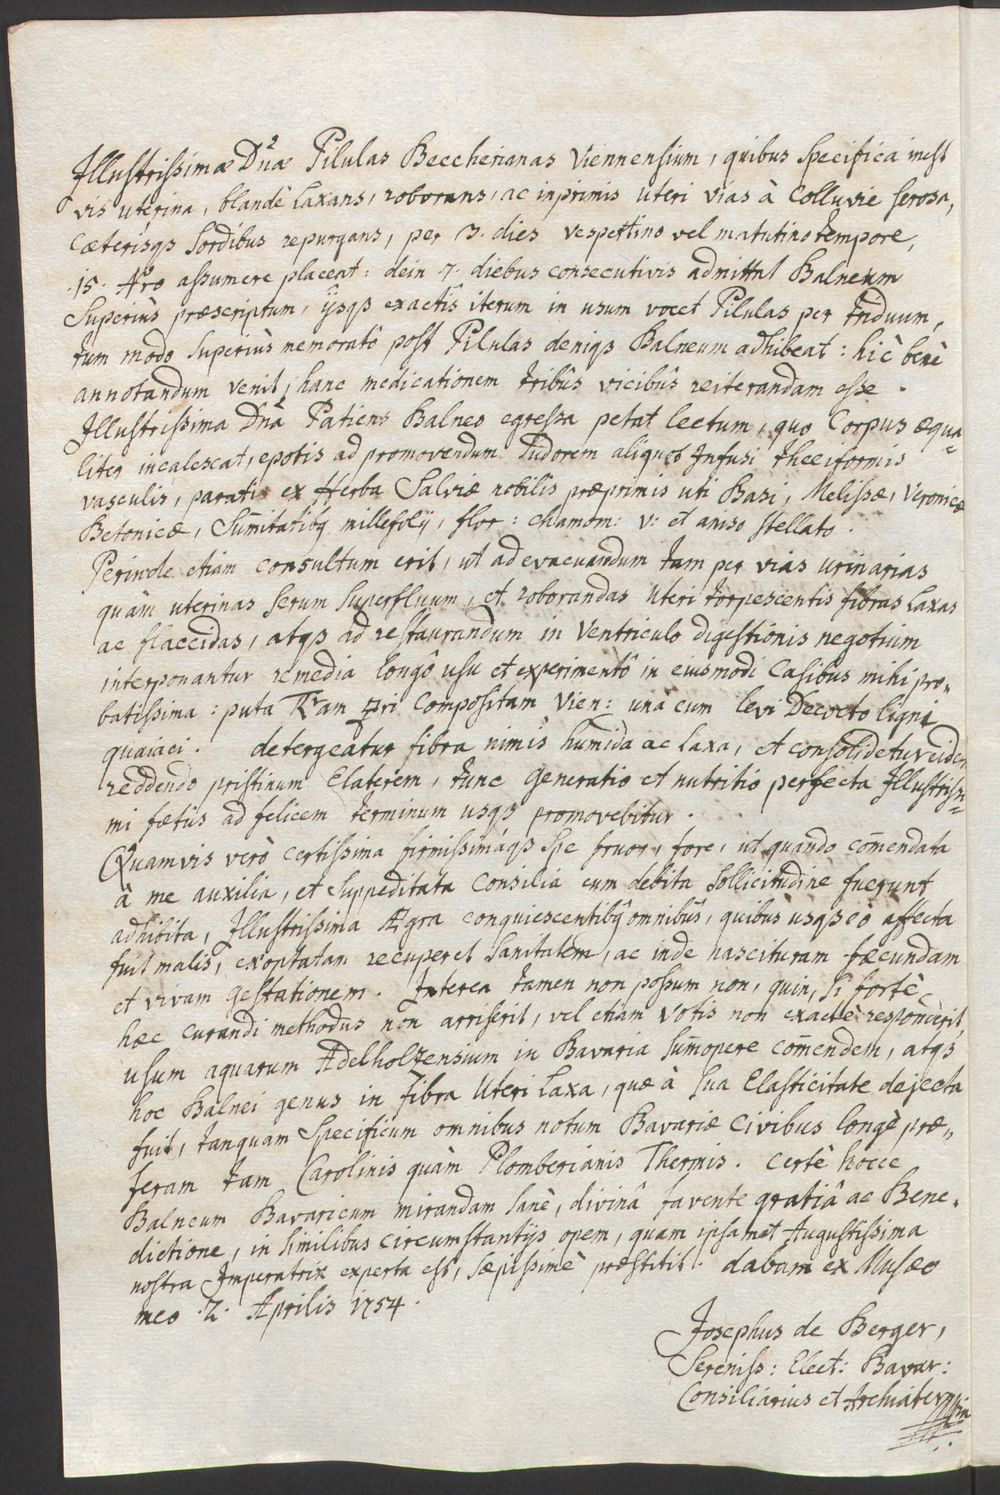 Illustrissimæ Dnæ Pilulas Beccherianas Viennensium, quibus Specifica inest
vis uterina, blandè laxans, roborans, ac inprimis uteri vias à Colluvie serosa,
Cæterisqs Sordibus repurgans, per 3. dies vespertino vel matutino tempore,
.15. Nro assumere placeat: dein 7. diebus consecutivis admittat Balneum
Superiùs præscriptum, ijsqs exactis iterum in usum vocet Pilulas per triduum,
tum modo Superiùs memoratô post Pilulas deniqs Balneum adhibeat: hic benè
annotandum venit, hanc medicationem tribûs vicibûs reiterandam esse.
Illustrissima Dnã Patiens Balneo egressa petat lectum, quo Corpus æqua=
liter incalescat, epotis ad promovendum Sudorem aliquot Infusi theeiformis
vasculis, paratis ex Herba Salviæ nobilis præprimis uti Basi, Melissæ, Veronicæ
Betonicæ, Sum̃itatibq millefolij, flor: chamom: v: et aniso stellato.
Perinde etiam consultum erit, ut ad evacuandum tam per vias urinarias
quàm uterinas Serum Superfluum, et roborandas Uteri torpescentis fibras Laxas
ac flaccidas, atqs ad restaurandum in Ventriculo digestionis negotium
interponantur remedia longô usu et experimentô in eiusmodi Casibus mihi pro=
batissima: puta Tram ♁ri Compositam Vien: unà cum levi Decocto ligni
quaiaci. detergeatur fibra nimis humida ac laxa, et consolidetur eidem
reddendo pristinum Elaterem, tunc generatio et nutritio perfecta Illustrissi=
mi fætûs ad felicem terminum usqs promovebitur.
Quamvis verò certissima firmissimáqs Spe fruor, fore, ut quando com̃endata
à me auxilia, et Suppeditata Consilia cum debita Sollicitudine fuerunt
adhibita, Illustrissima Ægra conquiescentibq omnibûs, quibus usqs eò affecta
fuit malis, exoptatam recuperet Sanitatem, ac inde nascituram fæcundam
et vivam gestationem. Interea tamen non possum non, quin, Si fortè
hæc curandi methodus non arriserit, vel etiam Votis non exactè responderit,
usum aquarum Adelholzensium in Bavaria Sum̃opere com̃endem, atqs
hoc Balnei genus in fibra Uteri Laxa, quæ à Sua Elasticitate dejecta
fuit, tanquam Specificum omnibus notum Bavariæ Civibus longè præ=
feram tam Carolinis quàm Plomberianis Thermis. Certè hocce
Balneum Bavaricum mirandam Sanè, divinâ favente gratiâ ac Bene=
dictione, in Similibus circumstantijs opem, quam ipsamet Augustissima
nostra Imperatrix experta est, Sæpissimè præstitit. dabam ex Musæo
meo .2. Aprilis 1754.
Josephus de Berger,
Sereniss: Elect: Bavar:
Consiliarius et Archiater